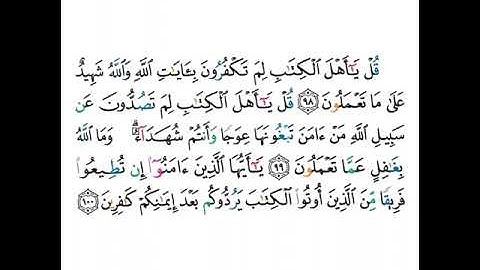 قُلْ يَٰٓأَهْلَ ٱلْكِتَٰبِ لِمَ تَكْفُرُونَ بِـَٔايَٰتِ ٱللَّهِ وَٱللَّهُ شَهِيدٌ
عَلَىٰ مَا تَعْمَلُونَ ٩٨ قُلْ يَٰٓأَهْلَ ٱلْكِتَٰبِ لِمَ تَصُدُّونَ عَن
سَبِيلِ ٱللَّهِ مَنْ ءَامَنَ تَبْغُونَهَا عِوَجًا وَأَنتُمْ شُهَدَآءُ ۗ وَمَا ٱللَّهُ
بِغَٰفِلٍ عَمَّا تَعْمَلُونَ ٩٩ يَٰٓأَيُّهَا ٱلَّذِينَ ءَامَنُوٓا۟ إِن تُطِيعُوا۟
فَرِيقًا مِّنَ ٱلَّذِينَ أُوتُوا۟ ٱلْكِتَٰبَ يَرُدُّوكُم بَعْدَ إِيمَٰنِكُمْ كَٰفِرِينَ ١٠٠